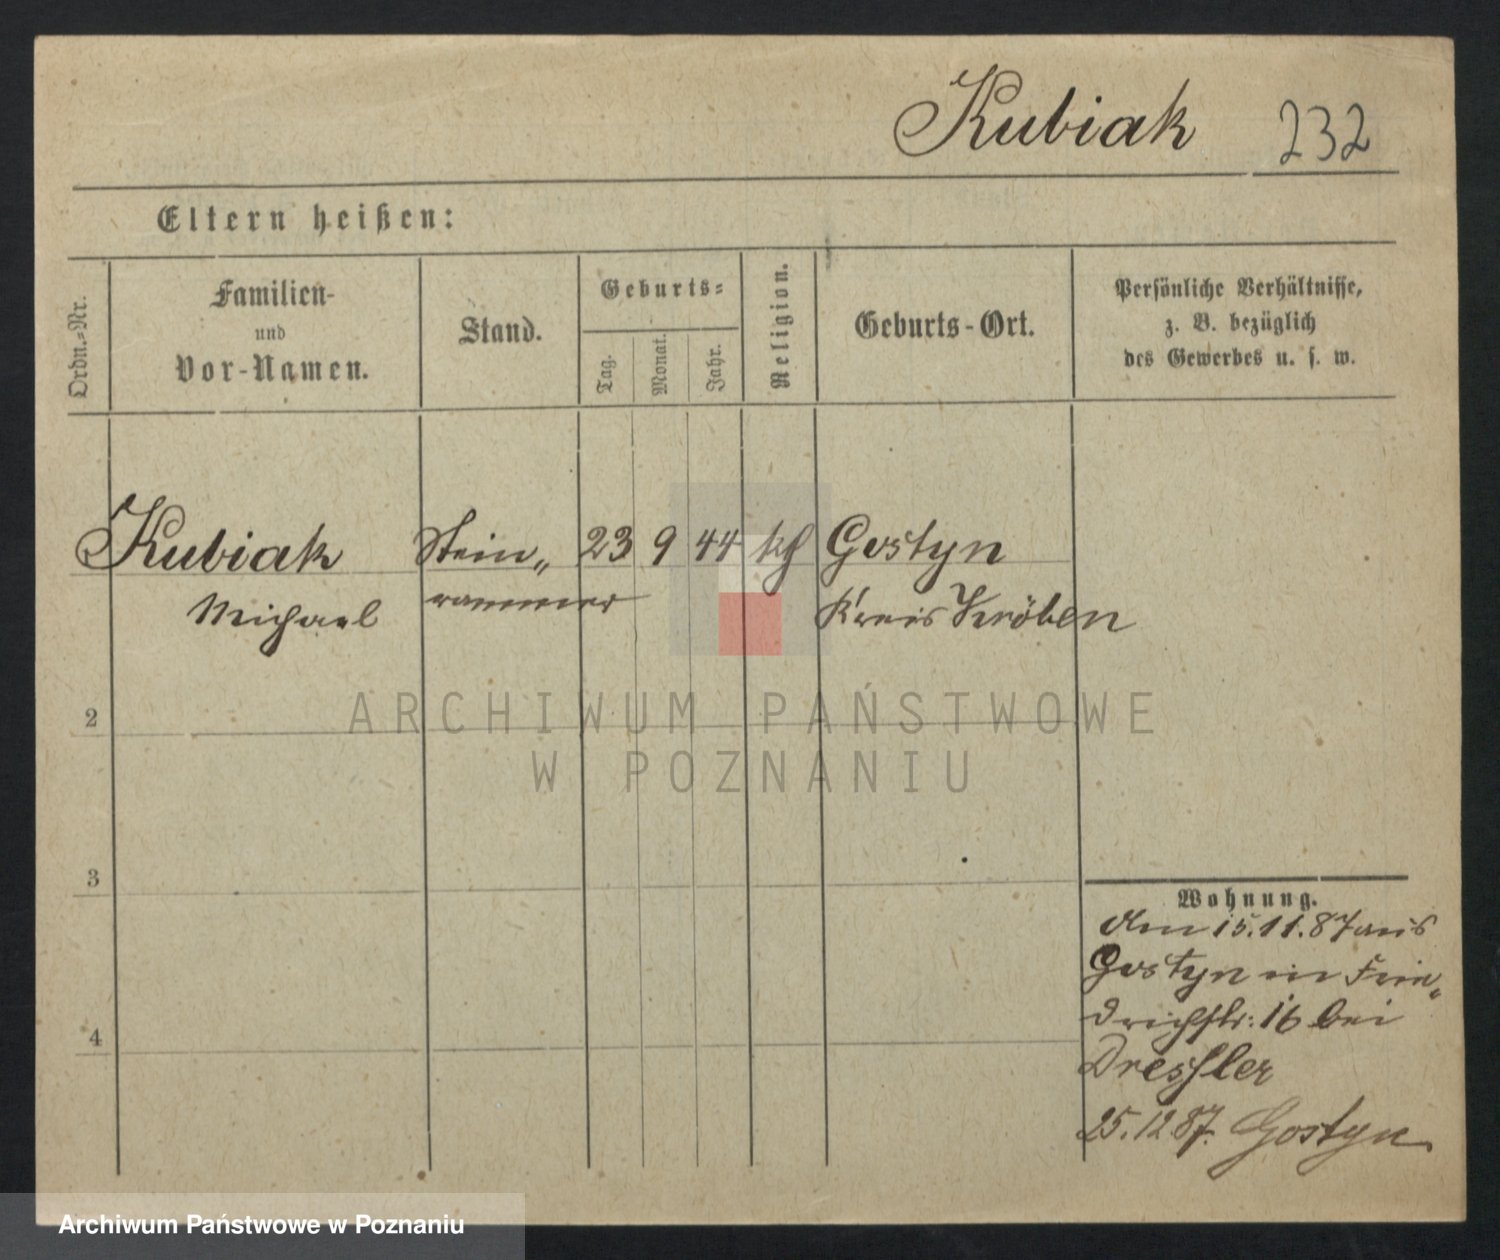 Kubiak 232
Eltern heißen:
Ordn.-Nr.
Familien-
und
Vor-Namen.
Stand.
Geburts-
Tag.
Monat.
Jahr.
Religion.
Geburts-Ort.
Persönliche Verhältnisse,
z. B. bezüglich
des Gewerbes u. s. w.
Kubiak Stein„ 23 9 44 kth Gostyn
Michael rammer Kreis Kröben
2
3
4
Wohnung.
Am 15.11.87 aus
Gostyn in Frie„
drichstr: 16 bei
Dressler
25.12.87. Gostyn
ARCHIWUM PAŃSTWOWE
W POZNANIU
Archiwum Państwowe w Poznaniu